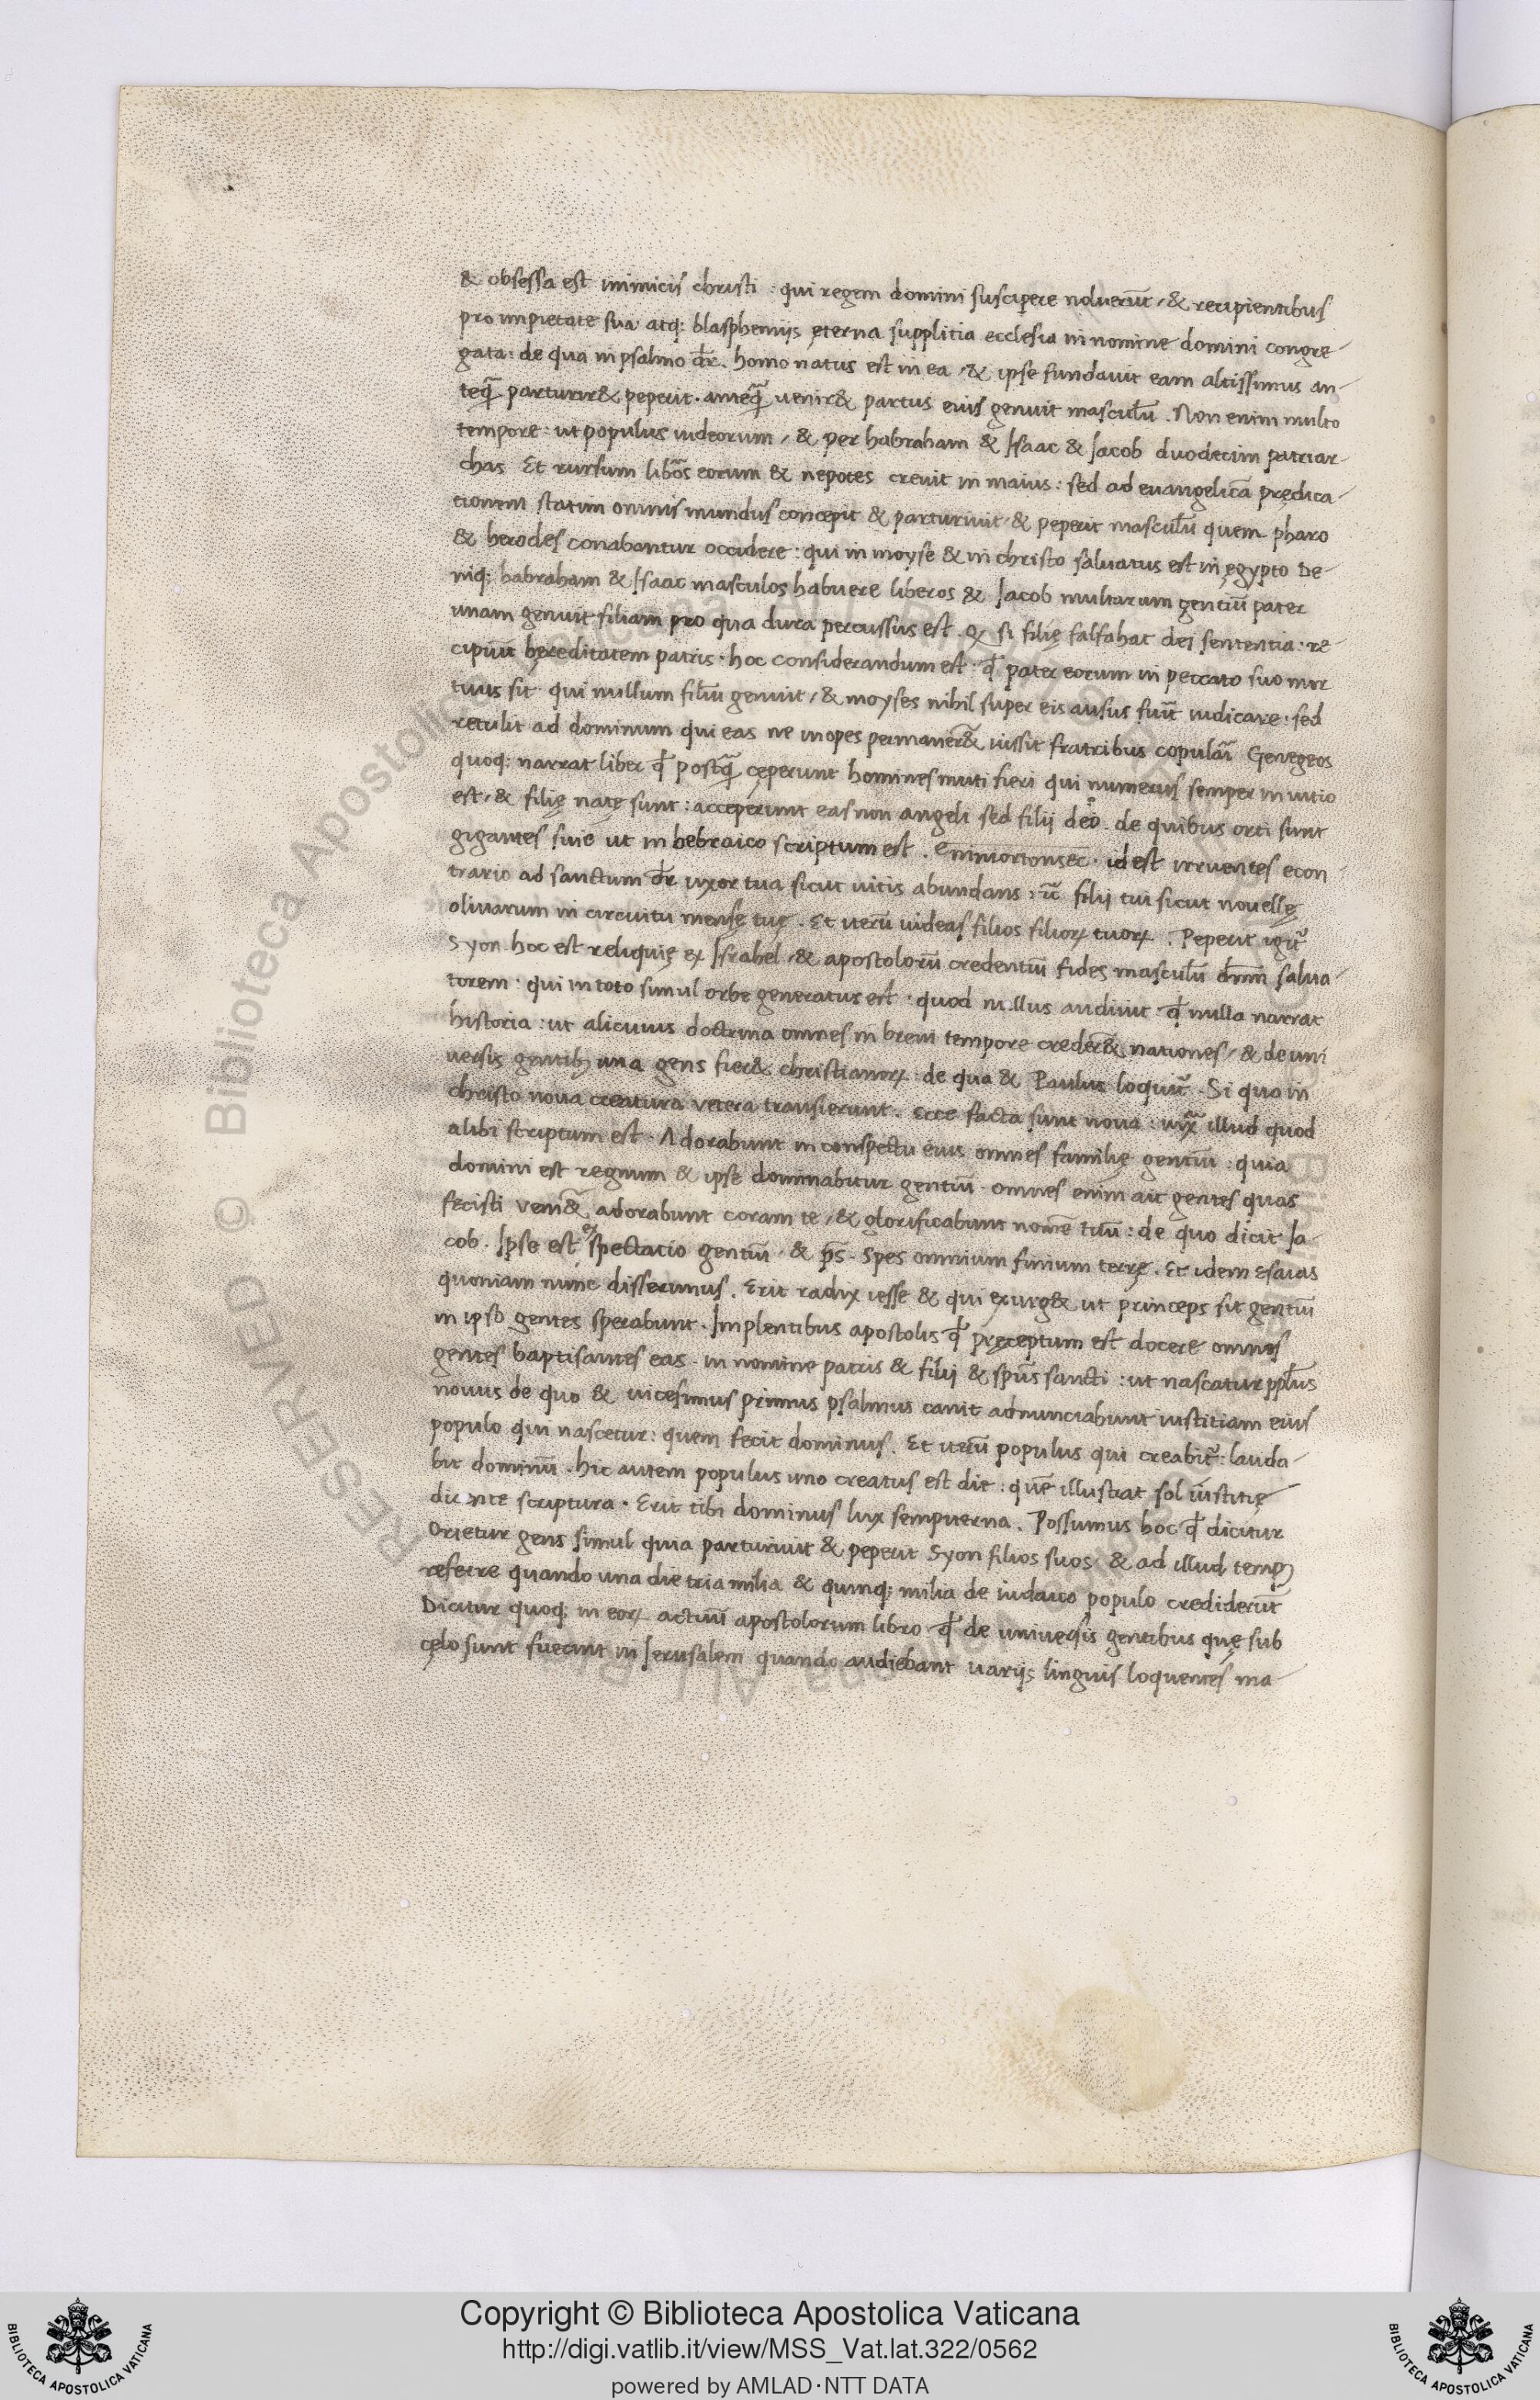 & obsessa est inimicis christi : qui regem domini suscipere noluerūt / & recipientibus
pro impietate sua atq; blasphemijs ęterna supplitia ecclesia in nomine domini congre-
gata : de qua in psalmo dr̄ . homo natus est in ea / & ipse fundavit eam altissimus an-
teq̄ parturir& peperit . anteq̄ venir& partus eius genuit masculū . Non enim multo
tempore : ut populus iudeorum / & per habraham & Isaac & Jacob duodecim patriar-
chas Et rursum lib̄os eorum & nepotes crevit in maius : sed ad evangelicā predica-
tionem statim omnis mundus concepit & parturivit / & peperit masculū quem pharo
& herodes conabantur occidere : qui in moyse & in christo salvatus est in ęgypto De-
niq; habraham & Isaac masculos habuere liberos & Jacob multarum gentiū pater
unam genuit filiam pro qua dura percussus est . si filię falfahat dei sententia : re-
cipiūt hereditatem patris . hoc considerandum est : q̄ pater eorum in peccato suo mor
tuus sit qui nullum filiū genuit / & moyses nihil super eis ausus fuīt iudicare . sed
retulit ad dominum qui eas ne inopes permaner& iussit fratribus copulāi Genegeos
quoq; narrat liber q̄ postq̄ cęperunt homines muti fieri qui numerus semper in vitio
est / & filię natę sunt : acceperunt eas non angeli sed filij deo . de quibus orti sunt
gigantes sive ut in hebraico scriptum est . id est irruentes econ
trario ad sanctum dr̄ uxor tua sicut vitis abundans : filij tui sicut novellę
olivarum in circuitu mensę tuę . Et iterū videas filios filioꝝ tuoꝝ . Peperit igit̄
Syon hoc est reliquię ex Israhel / & apostolorū credentiū fides masculū dn̄m salva-
torem : qui in toto simul orbe generatus est . quod nullus audivit q̄ nulla narrat
historia : ut alicuius doctrina omnes in brevi tempore creder& nationes / & de uni
versis gentibꝫ una gens fier& christianoꝝ . de qua & Paulus loquit̄ . Si quo in
christo nova creatura vetera transierunt . Ecce facta sunt nova : iuxͣ illud quod
alibi scriptum est . Adorabunt in conspectu eius omnes familię gentiū : quia
domini est regnum & ipse dominabitur gentiū . omnes enim ait gentes quas
fecisti veni& adorabunt coram te / & glorificabunt nomē tuū : de quo dicit Ja
cob . Ipse est exspectatio gentiū / & p̄s . Spes omnium finium terrę . Et idem Esaias
quoniam nunc disserimus . Erit radix iesse & qui exurg& ut princeps sit gentiū
in ipso gentes sperabunt . Implentibus apostolis q̄ pręceptum est docere omnes
gentes baptisantes eas . in nomine patris & filij & spūs sancti : ut nascatur ppl̄us
novus de quo & vicesimus primus psalmus canit adnunciabunt iustitiam eius
populo qui nascetur : quem fecit dominus . Et iterū populus qui creabit̄ : lauda-
bit dominū . Hic autem populus uno creatus est die : quē illustrat sol iustitię
dicente scriptura . Erit tibi dominus lux sempiterna . Possumus hoc q̄ dicitur
Orietur gens simul quia parturivit & peperit Syon filios suos / & ad illud tempꝰ
referre quando una die tria milia & quinq; milia de iudaico populo crediderūt
Dicitur quoq; in eoꝝ actuū apostolorum libro q̄ de universis gentibus quę sub
cęlo sunt fuerint in Jerusalem quando audiebant varijs linguis loquentes ma-
Copyright © Biblioteca Apostolica Vaticana
http://digi.vatlib.it/view/MSS_Vat.lat.322/0562
powered by AMLAD·NTT DATA